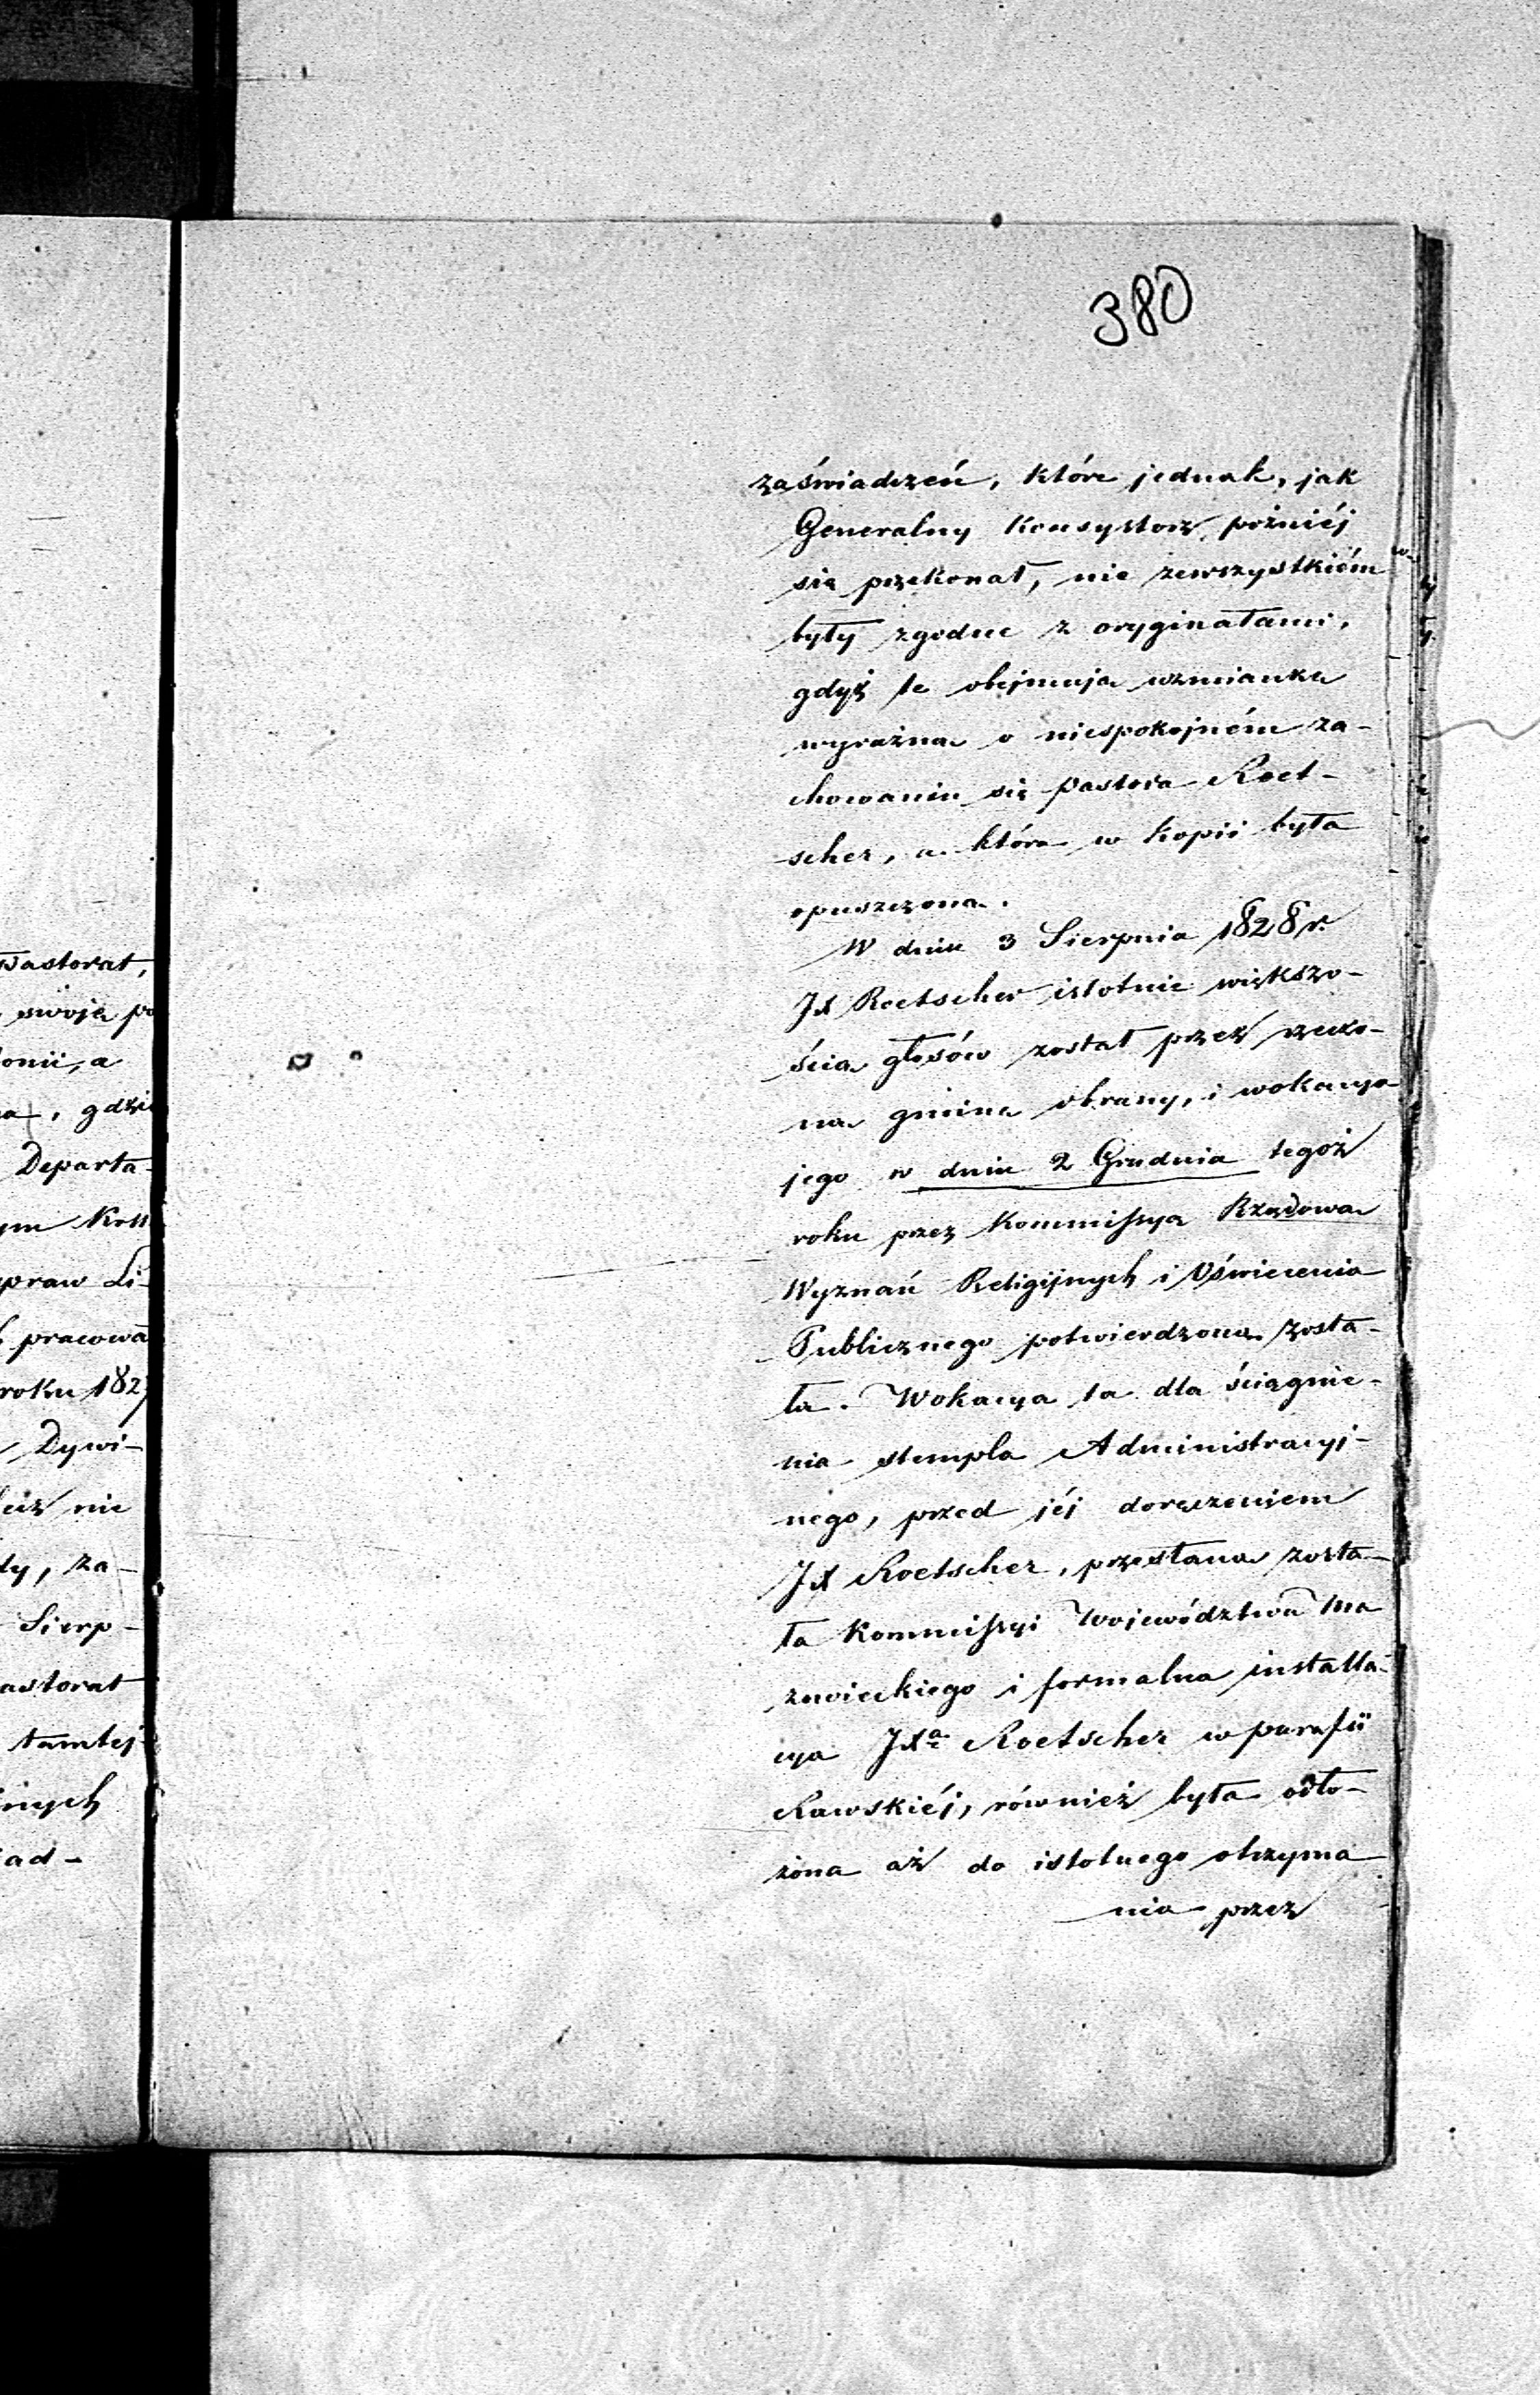 380
zaświadczeń, które jednak, jak
Generalny Konsystorz, poźniéj
się przekonał, nie zewszystkiém
były zgodne z oryginałami,
gdyż te obejmują wzmiankę
wyraźną o niespokojném za-
chowaniu się pastora Roet-
scher, a która w kopii była
opuszczona.
W dniu 3 Sierpnia 1828 r.
JX Roetscher istotnie większo-
ścią głosów został przez rzeczo-
ną gminę obrany, i wokacya
jego w dniu 2 Grudnia tegoż
roku przez Kommissyą Rządową
Wyznań Religijnych i Oświecenia
Publicznego potwierdzoną zosta-
ła. Wokacya ta dla ściągnie-
nia stempla Administracyj-
nego, przed jéj doręczeniem
JX Roetscher, przesłaną zosta-
ła Kommissyi Województwa Ma
zowieckiego i formalna installa-
cya JXa Roetscher w parafii
Rawskiéj, również była odło-
żona aż do istotnego otrzyma
nia przez
Pastorat,
swoją po
onii, a
, gdzi
Departa-
ym Kon
praw Li-
pracowa
roku 1827
Dywi-
nie
dy, za-
Sierp-
astorat
tamtej-
nych
iad-